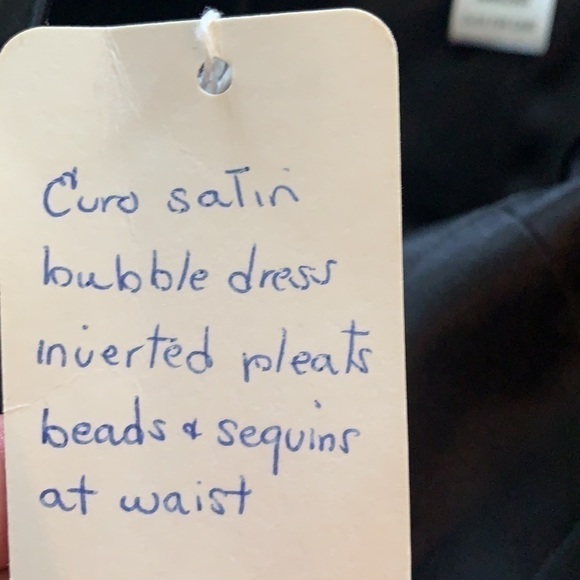 Euro satin
bubble dress
inverted pleats
beads & sequins
at waist